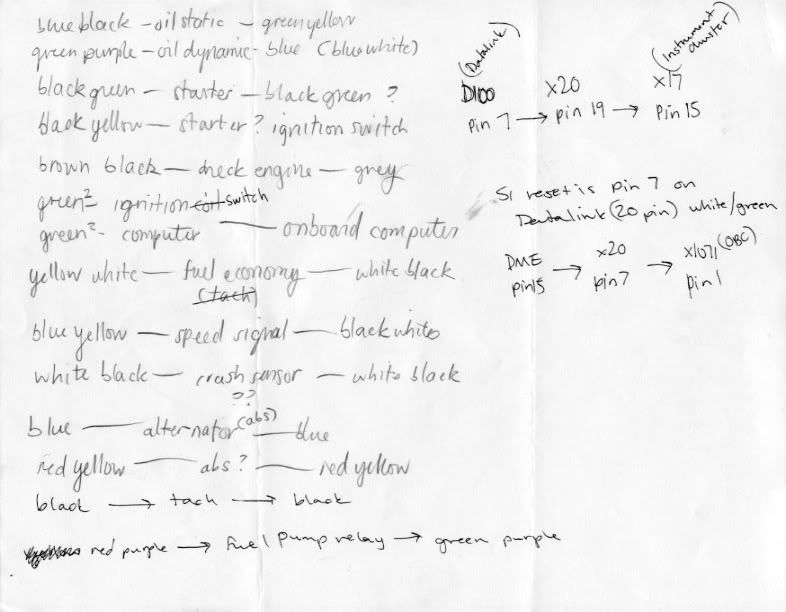 blue black - oil static - green yellow
green purple - oil dynamic - blue (blue white)
black green - starter - black green ?
black yellow - starter ? ignition switch
brown black - check engine - grey
green² ignition coil switch
green² - computer - onboard computer
yellow white - fuel economy - white black
(tach)
blue yellow - speed signal - black white
white black - crash sensor - white black
??
blue - alternator (abs) - blue
red yellow - abs ? - red yellow
black → tach → black
red purple → fuel pump relay → green purple
(Datalink) (Instrument cluster)
D100 x20 x17
pin 7 → pin 19 → pin 15
SI reset is pin 7 on
Datalink (20 pin) white/green
DME → x20 → x1071 (OBC)
pin15 pin7 pin 1